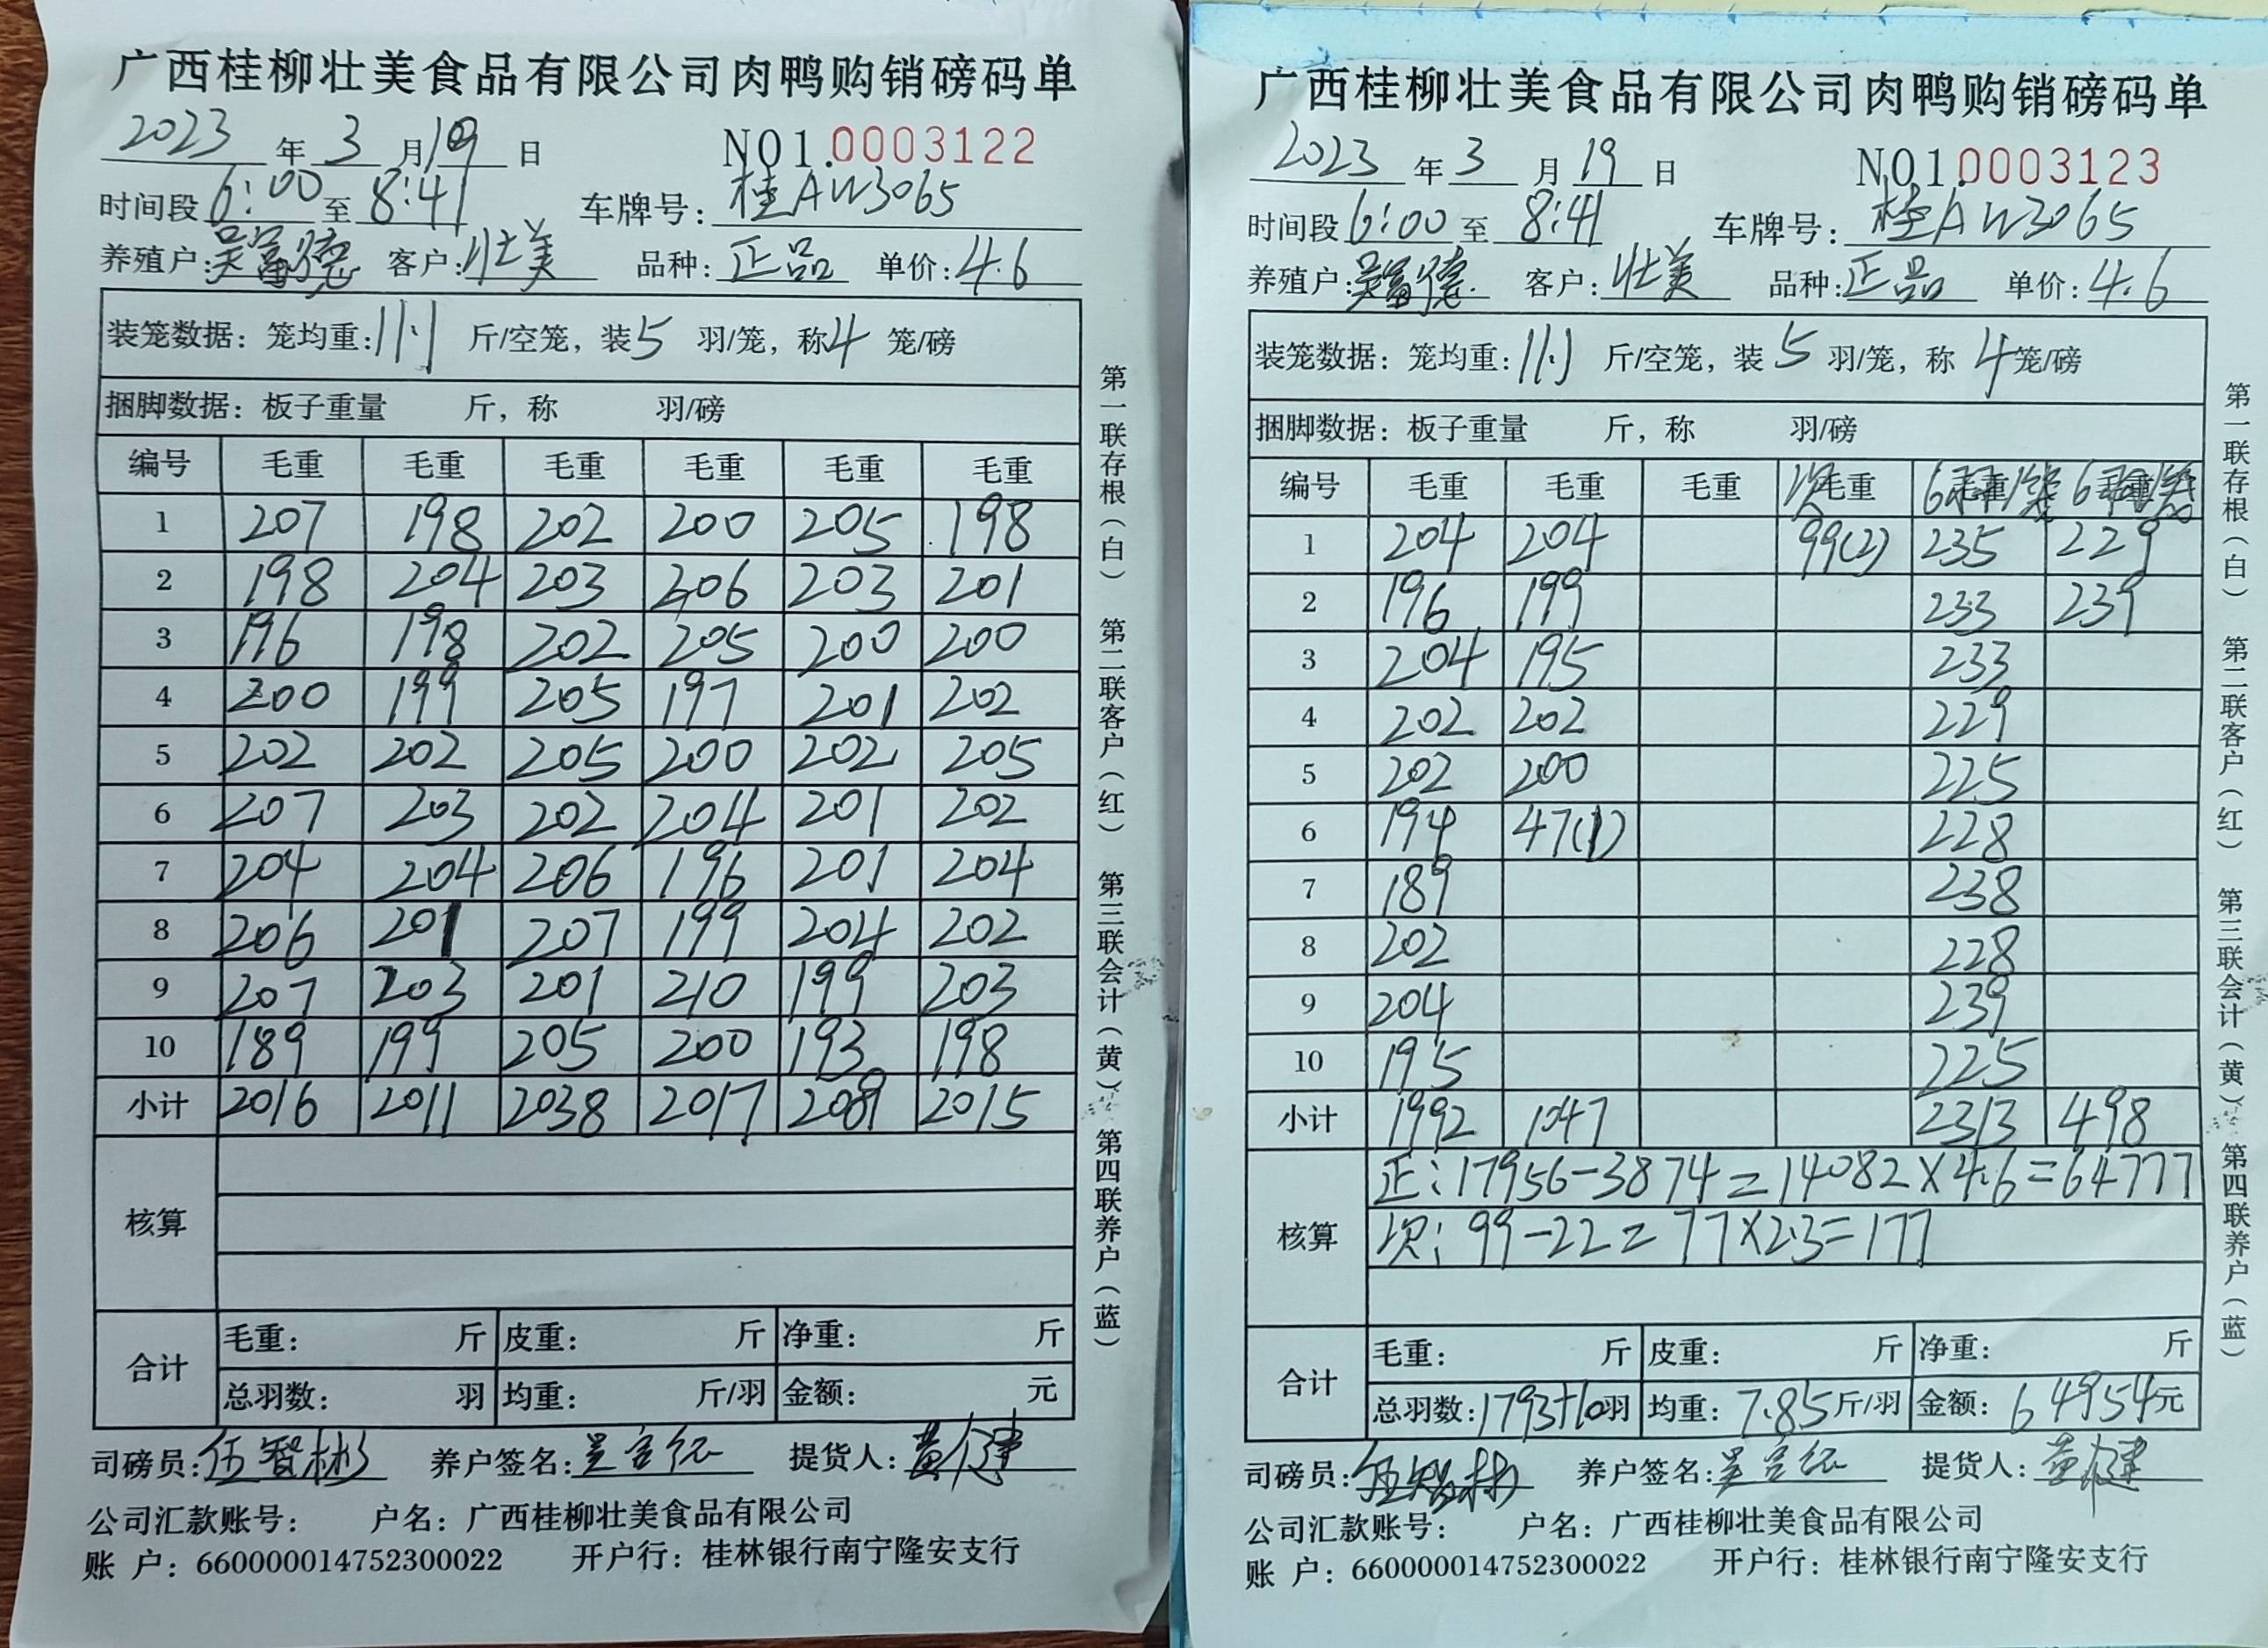 广西桂柳壮美食品有限公司肉鸭购销磅码单
2023 年 3 月 19 日 NO1.0003122
时间段 6:00 至 8:41 车牌号: 桂AW3065
养殖户: 吴富德 客户: 壮美 品种: 正品 单价: 4.6
装笼数据: 笼均重: 11.1 斤/空笼, 装 5 羽/笼, 称 4 笼/磅
捆脚数据: 板子重量 斤, 称 羽/磅
编号 毛重 毛重 毛重 毛重 毛重 毛重
1 207 198 202 200 205 198
2 198 204 203 206 203 201
3 196 198 202 205 200 200
4 200 199 205 197 201 202
5 202 202 205 200 202 205
6 207 203 202 204 201 202
7 204 204 206 196 201 204
8 206 201 207 199 204 202
9 207 203 201 210 199 203
10 189 199 205 200 193 198
小计 2016 2011 2038 2017 2015
核算
合计 毛重: 斤 皮重: 斤 净重: 斤
总羽数: 羽 均重: 斤/羽 金额: 元
司磅员: 伍智彬 养户签名: 提货人: 黄健
公司汇款账号: 户名: 广西桂柳壮美食品有限公司
账 户: 660000014752300022 开户行: 桂林银行南宁隆安支行
第一联存根(白) 第二联客户(红) 第三联会计(黄) 第四联养户(蓝)
广西桂柳壮美食品有限公司肉鸭购销磅码单
2023 年 3 月 19 日 NO1.0003123
时间段 6:00 至 8:41 车牌号: 桂AW3065
养殖户: 吴富德 客户: 壮美 品种: 正品 单价: 4.6
装笼数据: 笼均重: 11.1 斤/空笼, 装 5 羽/笼, 称 4 笼/磅
捆脚数据: 板子重量 斤, 称 羽/磅
编号 毛重 毛重 毛重 次毛重 6羽/笼 6羽/笼
1 204 204 99(2) 235 229
2 196 199 233 239
3 204 195 233
4 202 202 229
5 202 200 225
6 194 47(1) 228
7 189 238
8 202 228
9 204 239
10 195 225
小计 1992 1047 2313 498
核算 正: 17956-3874=14082×4.6=64777
次: 99-22=77×2.3=177
合计 毛重: 斤 皮重: 斤 净重: 斤
总羽数: 1793+10羽 均重: 7.85斤/羽 金额: 64954元
司磅员: 伍智彬 养户签名: 提货人: 黄健
公司汇款账号: 户名: 广西桂柳壮美食品有限公司
账 户: 660000014752300022 开户行: 桂林银行南宁隆安支行
第一联存根(白) 第二联客户(红) 第三联会计(黄) 第四联养户(蓝)